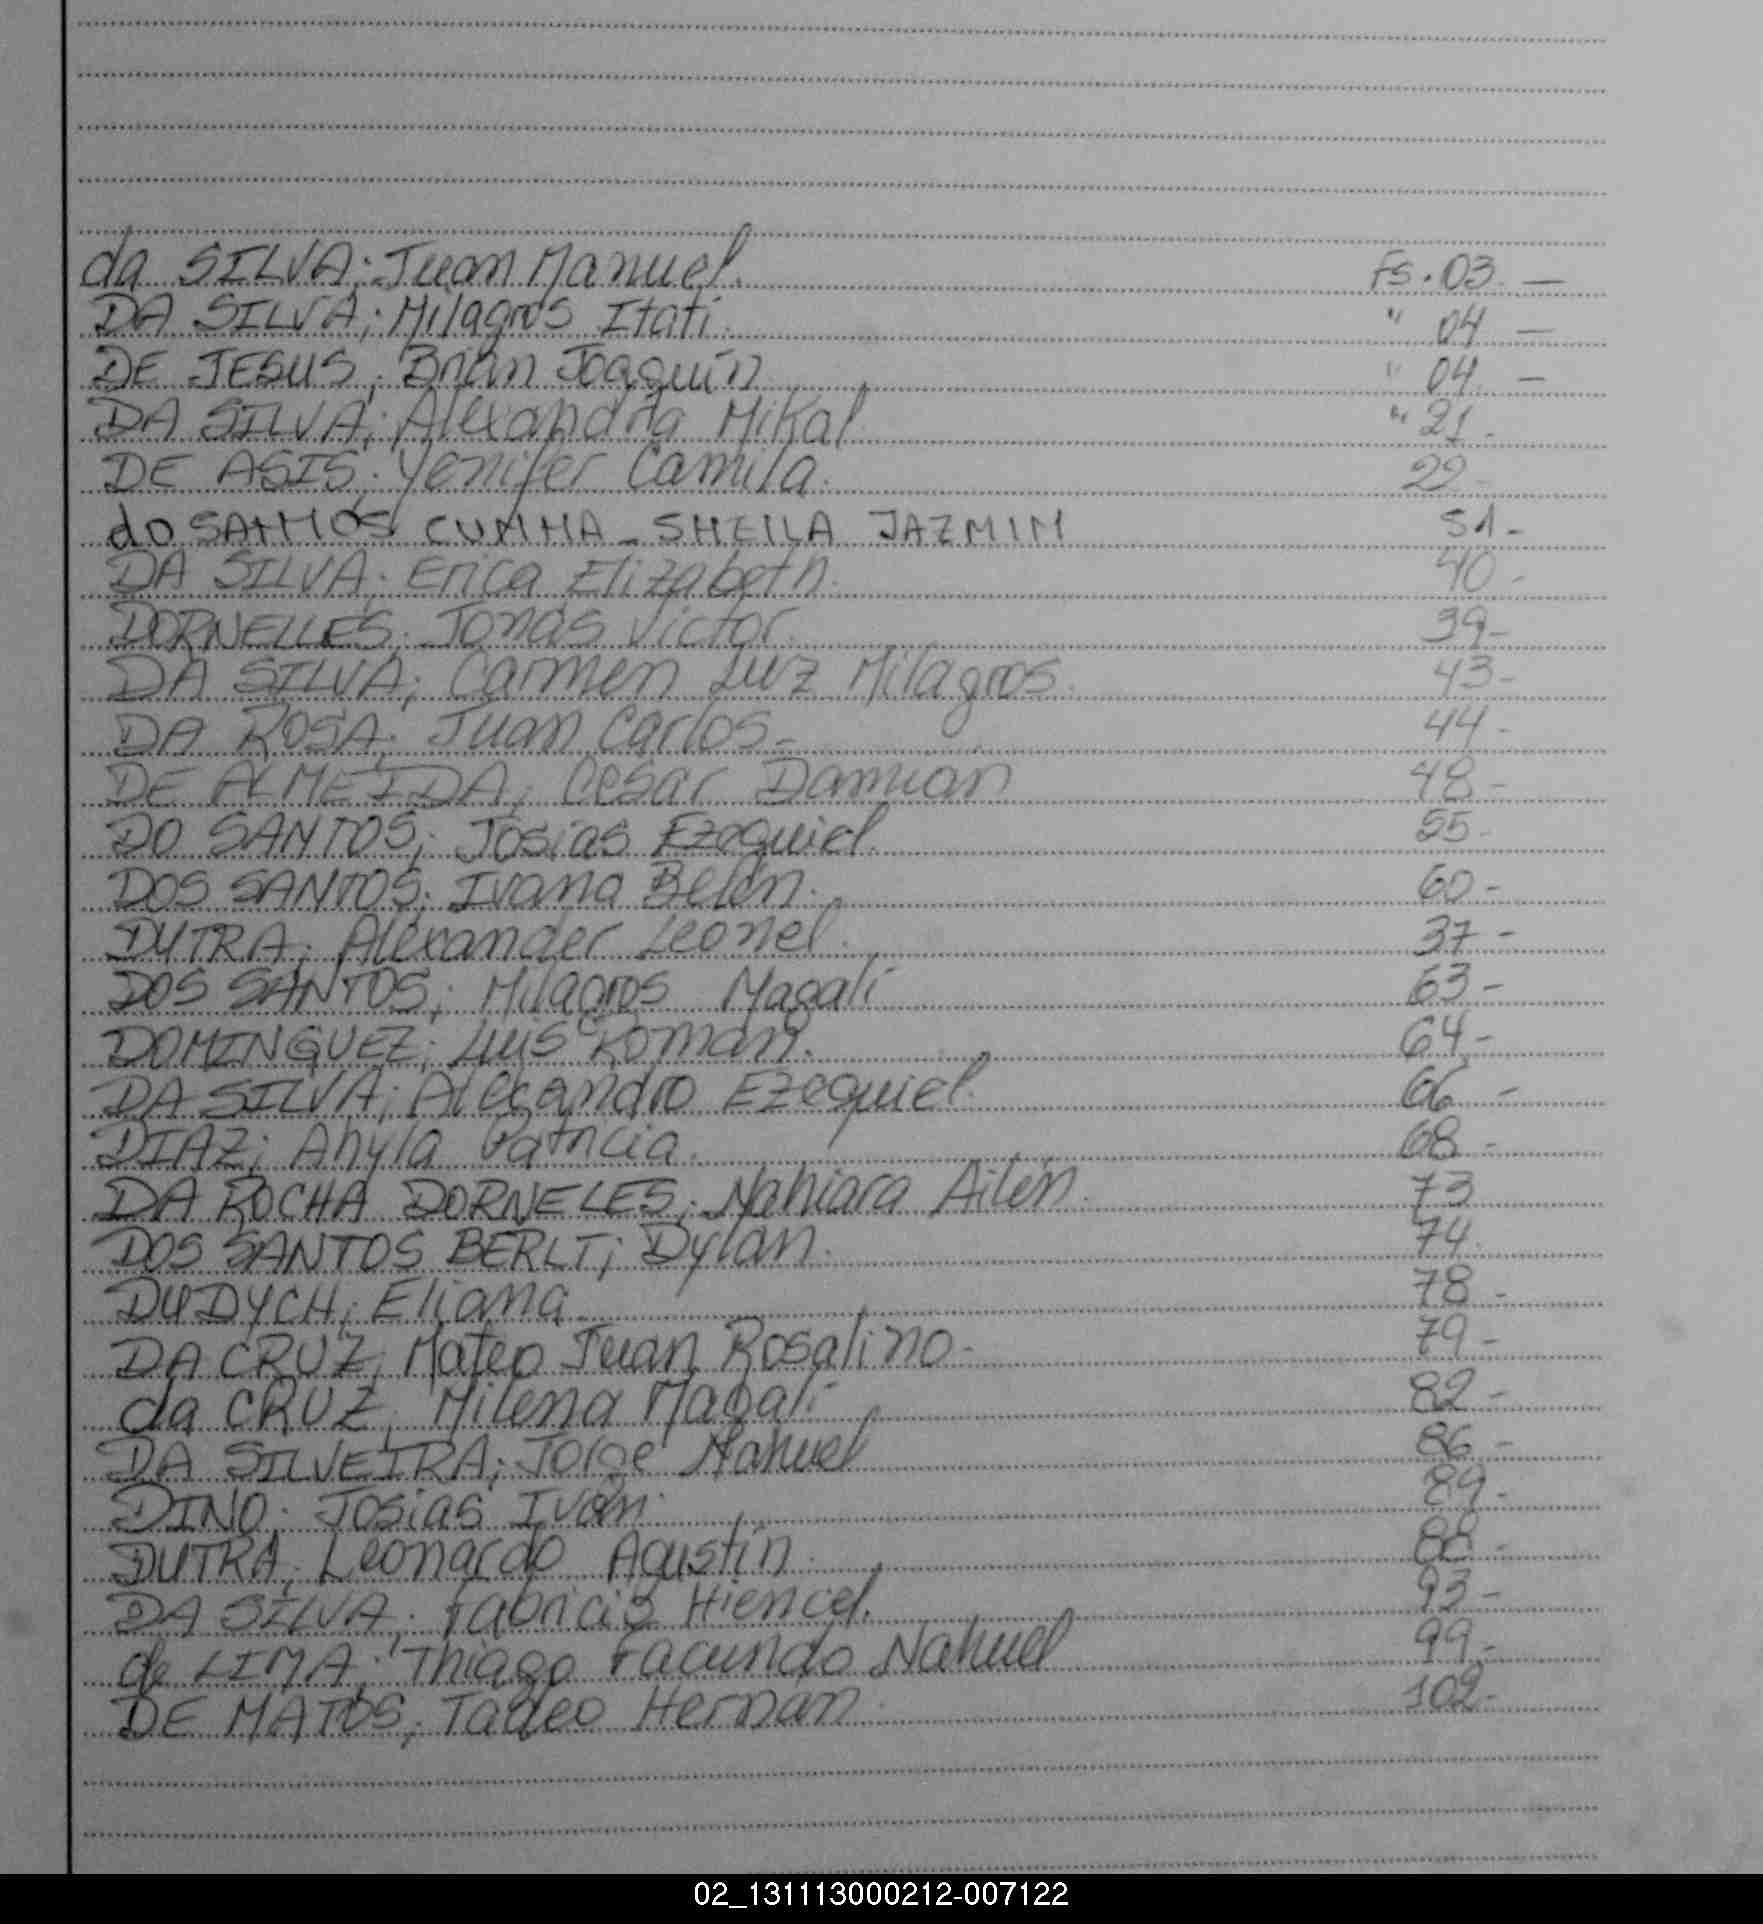 da SILVA; Juan Manuel. Fs. 03. —
DA SILVA; Milagros Itati. " 04 —
DE JESUS; Brian Joaquín " 04. —
DA SILVA; Alexandra Mikal " 21.
DE ASIS; Yenifer Camila. 22 -
do SANTTOS CUNHA - SHEILA JAZMIN 51 -
DA SILVA; Erica Elizabeth. 40 -
DORNELLES; Jonas Victor. 39 -
DA SILVA; Carmen Luz Milagros. 43 -
DA ROSA; Juan Carlos - 44 -
DE ALMEIDA; Cesar Damian 48 -
DO SANTOS; Josias Ezequiel. 55 -
DOS SANTOS; Ivana Belén. 60 -
DUTRA; Alexander Leonel. 37 -
DOS SANTOS; Milagros Magali 63 -
DOMINGUEZ; Luis Román. 64 -
DA SILVA; Alecandro Ezequiel. 66 -
DIAZ; Anyla Patricia. 68 -
DA ROCHA DORNELES; Nahiara Ailén. 73
DOS SANTOS BERLT; Dylan. 74.
DUDYCH; Eliana 78 -
DA CRUZ; Mateo Juan Rosalino - 79 -
da CRUZ; Milena Magali 82 -
DA SILVEIRA; Jorge Nahuel 86 -
DINO; Josias Iván. 89 -
DUTRA; Leonardo Agustín. 88 -
DA SILVA; Fabricio Hiencel. 93 -
de LIMA; Thiago Facundo Nahuel 99 -
DE MATOS; Tadeo Hernan. 102 -
02_131113000212-007122